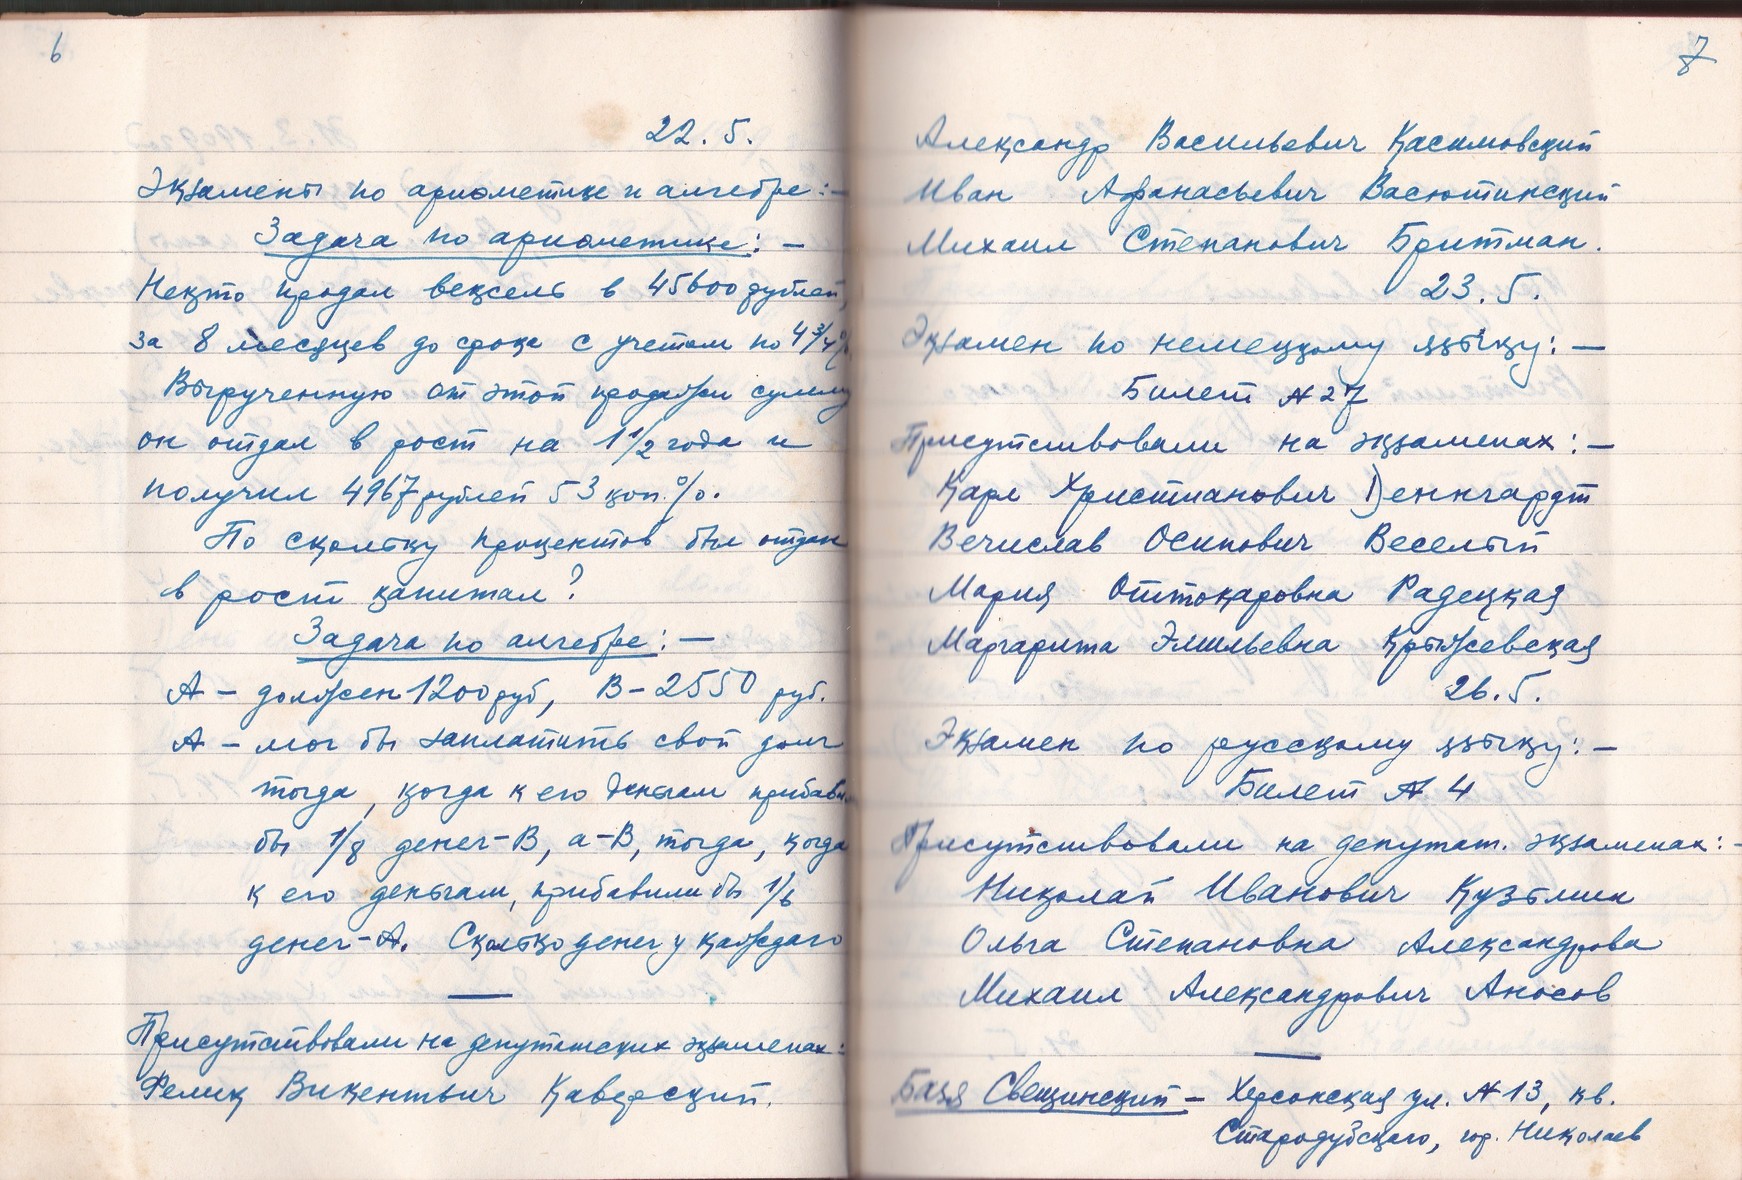 6
22. 5.
Экзамены по ариѳметике и алгебре: —
Задача по ариѳметике: —
Некто продал вексель в 45600 рублей,
за 8 месяцев до срока с учетом по 4 3/4 %
Вырученную от этой продажи сумму
он отдал в рост на 1 1/2 года и
получил 4967 рублей 53 коп. %.
По скольку процентов был отдан
в рост капитал?
Задача по алгебре: —
А — должен 1200 руб, В — 2550 руб.
А — мог бы заплатить свой долг
тогда, когда к его деньгам прибавили
бы 1/8 денег-В, а-В, тогда, когда
к его деньгам, прибавили бы 1/6
денег-А. Сколько денег у каждаго
Присутствовали на депутатских экзаменах:
Феликс Викентьич Каверский.
7
Александр Васильевич Касимовский
Иван Афанасьевич Васютинский
Михаил Степанович Бритман.
23. 5.
Экзамен по немецкому языку: —
Билет № 27
Присутствовали на экзаменах: —
Карл Христианович
Вечислав Осипович Веселый
Мария Оттокаровна Радецкая
Маргарита Эмильевна Крыжевская
26. 5.
Экзамен по русскому языку: —
Билет № 4
Присутствовали на депутат. экзаменах: —
Николай Иванович Кузьмин
Ольга Степановна Александрова
Михаил Александрович Аносов
Базя Свещинский — Херсонская ул. № 13, кв.
Стародубскаго, гор. Николаев